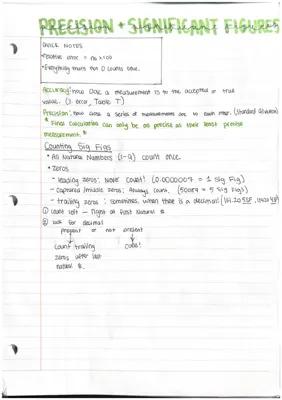 PRECISION + SIGNIFICANT FIGURES
QUICK NOTES
•Positive error = no x100
•Everything that's not 0 counts once.
Accuracy: how close a measurement is to the accepted or true
value. (% error, Table T)
Precision: how close a series of measurements are to each other. (Standard deviation)
* Final calculation can only be as precise as their least precise
measurement. *
Counting Sig Figs
• All Natural Numbers (1-9) count once.
• Zeros
- leading zeros: Never count! (0.0000007 = 1 Sig Fig)
- Captured/middle zeros: Always count. (50009 = 5 Sig Figs)
- trailing zeros: sometimes, when there is a decimal!
① count left → right at first Natural #
② look for decimal
present or not present
count trailing
zeros after last
natural #.